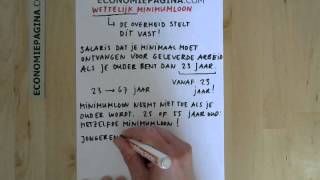 ECONOMIEPAGINA.COM
ECONOMIEPAGINA.COM
WETTELIJK MINIMUMLOON
↳ DE OVERHEID STELT
DIT VAST!
SALARIS DAT JE MINIMAAL MOET
ONTVANGEN VOOR GELEVERDE ARBEID
ALS JE OUDER BENT DAN 23 JAAR.
23 → 67 JAAR
VANAF 23
JAAR!
MINIMUMLOON NEEMT NIET TOE ALS JE
OUDER WORDT. 25 OF 55 JAAR OUD:
HETZELFDE MINIMUMLOON!
JONGEREN